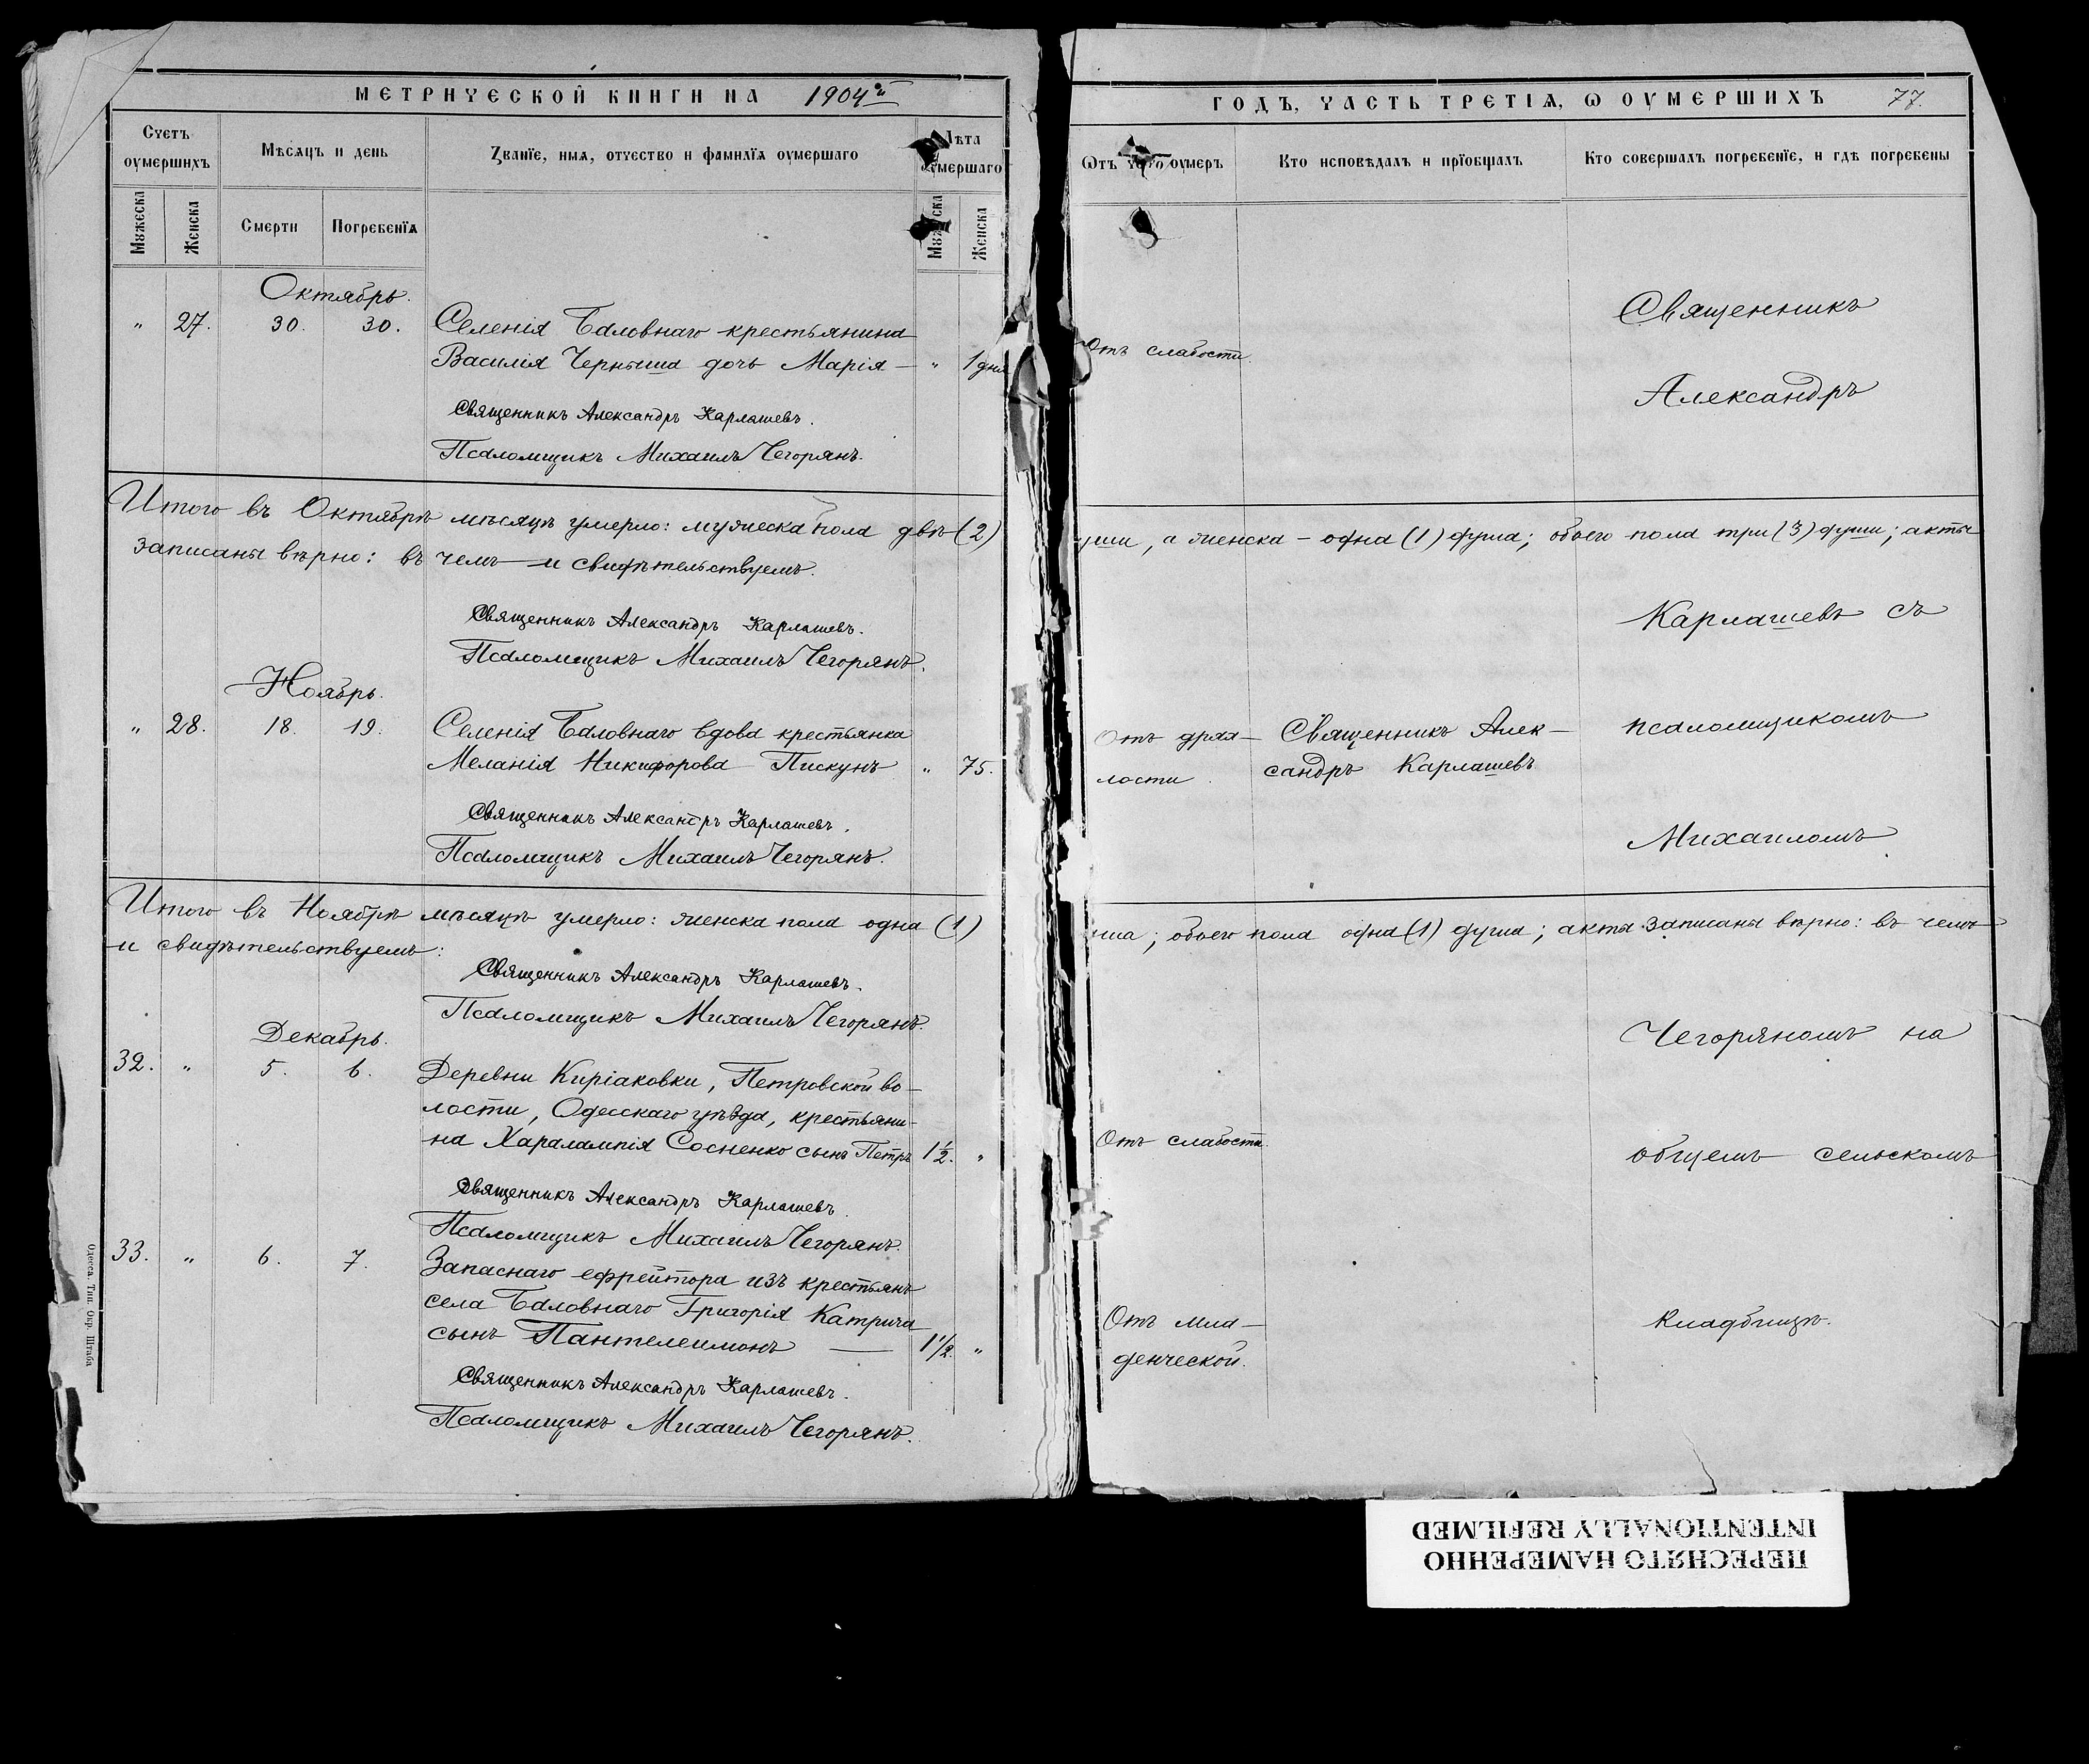 МЕТРИЧЕСКОЙ КНИГИ НА 1904й
Счетъ оумершихъ
Мѣсяцъ и день
Званїе, имя, отчество и фамилїя оумершаго
Лѣта оумершаго
Мужеска
Женска
Смерти
Погребенїя
Мужеска
Женска
Октябрь.
" 27. 30. 30. Селенія Баловнаго крестьянина
Василія Черныша дочь Марія — " 1 дня
Священникъ Александръ Карлашевъ.
Псаломщикъ Михаилъ Чегорянъ.
Итого въ Октябрѣ мѣсяцѣ умерло: мужеска пола двѣ (2)
записаны вѣрно: въ чемъ и свидѣтельствуемъ.
Священникъ Александръ Карлашевъ.
Псаломщикъ Михаилъ Чегорянъ.
Ноябрь.
" 28. 18. 19. Селенія Баловнаго вдова крестьянка
Меланія Никифорова Пискунъ " 75.
Священникъ Александръ Карлашевъ.
Псаломщикъ Михаилъ Чегорянъ.
Итого въ Ноябрѣ мѣсяцѣ умерло: женска пола одна (1)
и свидѣтельствуемъ:
Священникъ Александръ Карлашевъ.
Псаломщикъ Михаилъ Чегорянъ.
Декабрь.
32. " 5. 6. Деревни Киріаковки, Петровской во-
лости, Одесскаго уѣзда, крестьяни-
на Харалампія Сосненко сынъ Петръ 1½. "
Священникъ Александръ Карлашевъ.
Псаломщикъ Михаилъ Чегорянъ.
33. " 6. 7. Запаснаго ефрейтора изъ крестьянъ
села Баловнаго Григорія Катрича
сынъ Пантелеимонъ — 1½. "
Священникъ Александръ Карлашевъ.
Псаломщикъ Михаилъ Чегорянъ.
Одесса. Тип. Окр. Штаба
ГОДЪ, ЧАСТЬ ТРЕТІЯ, Ѡ ОУМЕРШИХЪ 77.
Ѿтъ чего оумеръ
Кто исповѣдалъ и прїобщалъ
Кто совершалъ погребенїе, и гдѣ погребены
Священникъ
Отъ слабости.
Александръ
уши, а женска - одна (1) душа; обоего пола три (3) души; акты
Карлашевъ съ
Отъ дрях- Священникъ Алек- псаломщикомъ
лости. сандръ Карлашевъ
Михаиломъ
ша; обоего пола одна (1) душа; акты записаны вѣрно: въ чемъ
Чегоряномъ на
Отъ слабости.
общемъ сельскомъ
Отъ мла- кладбищѣ.
денческой.
ПЕРЕСНЯТО НАМЕРЕННО
INTENTIONALLY REFILMED